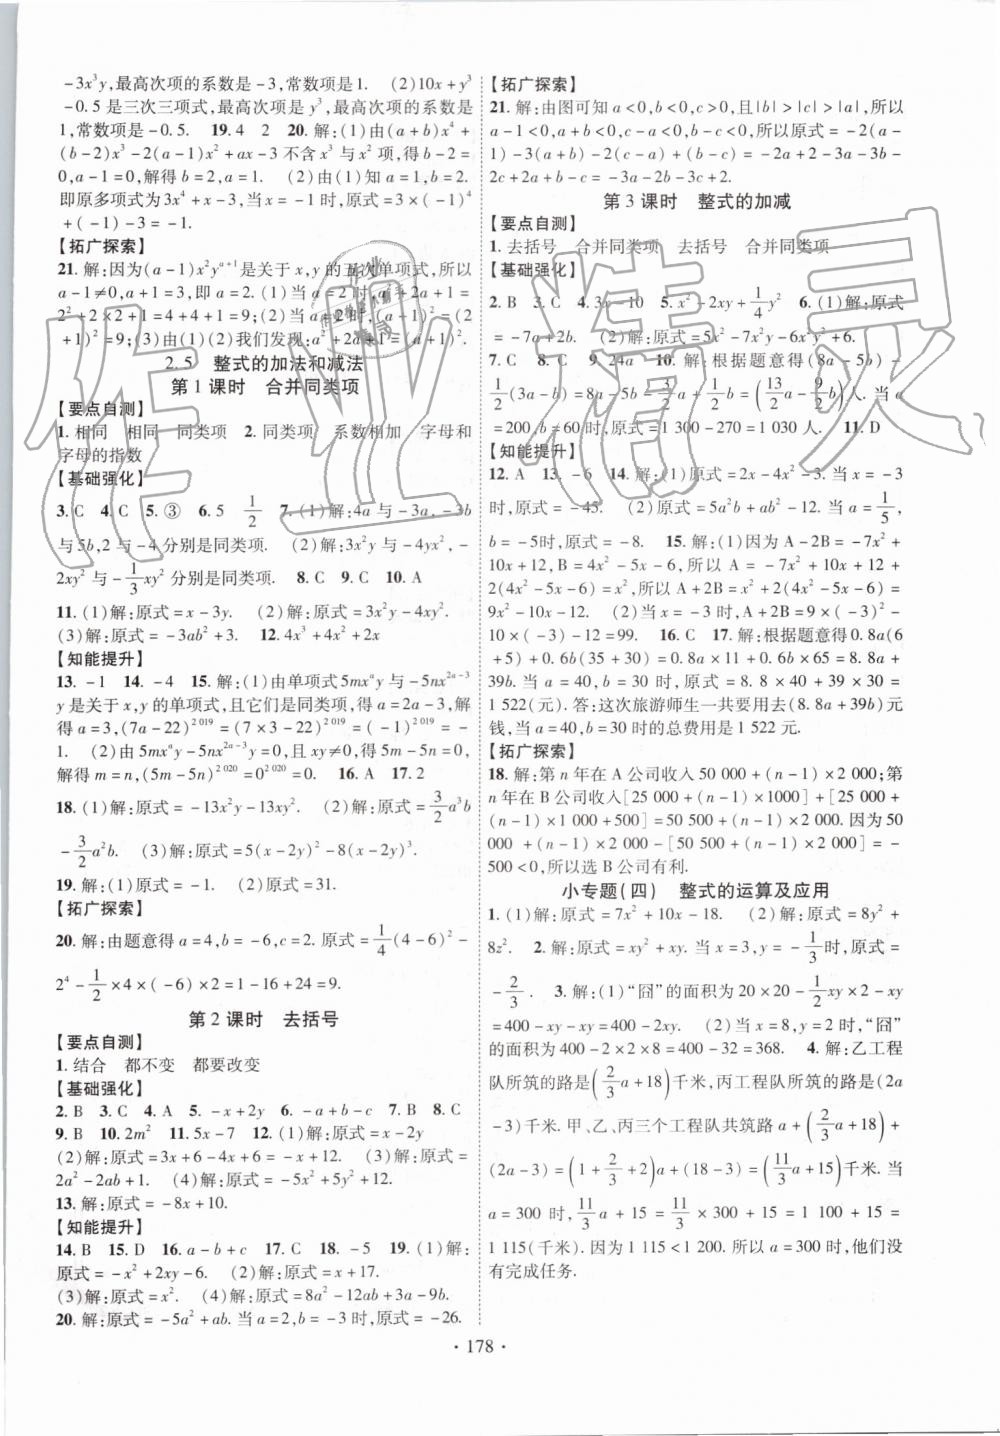 -3x³y,最高次项的系数是-3,常数项是1. (2)10x+y³
-0.5是三次三项式,最高次项是y³,最高次项的系数是
1,常数项是-0.5. 19.4 2 20.解:(1)由(a+b)x⁴+
(b-2)x³-2(a-1)x²+ax-3不含x³与x²项,得b-2=
0,a-1=0,解得a=1,b=2. (2)由(1)知a=1,b=2.
即原多项式为3x⁴+x-3,当x=-1时,原式=3×(-1)⁴
+(-1)-3=-1.
【拓广探索】
21.解:因为(a-1)x²yᵃ⁺¹是关于x,y的五次单项式,所以
a-1≠0,a+1=3,即a=2.(1)当a=2时,a²+2a+1=
2²+2×2+1=4+4+1=9;(2)当a=2时,(a+1)²=(2+
1)²=9;(3)由(1)(2)我们发现:a²+2a+1=(a+1)².
2.5 整式的加法和减法
第1课时 合并同类项
【要点自测】
1.相同 相同 同类项 2.同类项 系数相加 字母和
字母的指数
【基础强化】
3.C 4.C 5.③ 6.5 1/2 7.(1)解:4a与-3a,-3b
与5b,2与-4分别是同类项. (2)解:3x²y与-4yx²,-
2xy²与-1/3xy²分别是同类项. 8.C 9.C 10.A
11.(1)解:原式=x-3y. (2)解:原式=3x²y-4xy².
(3)解:原式=-3ab²+3. 12.4x³+4x²+2x
【知能提升】
13.-1 14.-4 15.解:(1)由单项式5mxᵃy与-5nx²ᵃ⁻³
y是关于x,y的单项式,且它们是同类项,得a=2a-3,解
得a=3,(7a-22)²⁰¹⁹=(7×3-22)²⁰¹⁹=(-1)²⁰¹⁹=-
1. (2)由5mxᵃy-5nx²ᵃ⁻³y=0,且xy≠0,得5m-5n=0,
解得m=n,(5m-5n)²⁰²⁰=0²⁰²⁰=0. 16.A 17.2
18.(1)解:原式=-13x²y-13xy². (2)解:原式=3/2a³b
-3/2a²b. (3)解:原式=5(x-2y)²-8(x-2y)³.
19.解:(1)原式=-1. (2)原式=31.
【拓广探索】
20.解:由题意得a=4,b=-6,c=2.原式=1/4(4-6)²-
2⁴-1/2×4×(-6)×2=1-16+24=9.
第2课时 去括号
【要点自测】
1.结合 都不变 都要改变
【基础强化】
2.B 3.C 4.A 5.-x+2y 6.-a+b-c 7.B 8.C
9.B 10.2m² 11.5x-7 12.(1)解:原式=x-2y
(2)解:原式=3x+6-4x+6=-x+12. (3)解:原式=
2a²-2ab+1. (4)解:原式=-5x²+5x+12.
13.解:原式=-8x+10.
【知能提升】
14.B 15.D 16.a-b+c 17.C 18.-5 19.(1)解:
原式=-x²+2xy-6. (2)解:原式=x+17.
(3)解:原式=x². (4)解:原式=8a²-12ab+3a-9b.
20.解:原式=-5a²+ab.当a=2,b=-3时,原式=-26.
【拓广探索】
21.解:由图可知a<0,b<0,c>0,且|b|>|c|>|a|,所以
a-1<0,a+b<0,b-c<0,所以原式=-2(a-
1)-3(a+b)-2(c-a)+(b-c)=-2a+2-3a-3b-
2c+2a+b-c=-3a-2b-3c+2.
第3课时 整式的加减
【要点自测】
1.去括号 合并同类项 去括号 合并同类项
【基础强化】
2.B 3.C 4.3x-10 5.x²+2xy+1/4y² 6.(1)解:原式
=-7a+2b. (2)解:原式=6x²-7x²y-6x²y²+6y².
7.C 8.C 9.24a 10.解:根据题意得(8a-5b)-
1/2(3a-b)=8a-5b-3/2a+1/2b=(13/2a-9/2b)人.当a
=200,b=60时,原式=1 300-270=1 030人. 11.D
【知能提升】
12.A 13.-6 14.解:(1)原式=2x-4x²-2.当x=-3
时,原式=-45. (2)原式=5a²b+ab²-12.当a=1/5,
b=-5时,原式=-8. 15.解:(1)因为A-2B=-7x²+
10x+12,B=4x²-5x-6,所以A=-7x²+10x+12+
2(4x²-5x-6)=x²,所以A+2B=x²+2(4x²-5x-6)=
9x²-10x-12. (2)当x=-3时,A+2B=9×(-3)²-
10×(-3)-12=99. 16.C 17.解:根据题意得0.8a(6
+5)+0.6b(35+30)=0.8a×11+0.6b×65=8.8a+
39b.当a=40,b=30时,8.8a+39b=8.8×40+39×30=
1 522(元).答:这次旅游师生一共要用去(8.8a+39b)元
钱,当a=40,b=30时的总费用是1 522元.
【拓广探索】
18.解:第n年在A公司收入50 000+(n-1)×2 000;第
n年在B公司收入[25 000+(n-1)×1000]+[25 000+
(n-1)×1 000+500]=50 500+(n-1)×2 000.因为50
000+(n-1)×2 000-[50 500+(n-1)×2 000]=-
500<0,所以选B公司有利.
小专题(四) 整式的运算及应用
1.(1)解:原式=7x²+10x-18. (2)解:原式=8y²+
8z². 2.解:原式=xy²+xy.当x=3,y=-1/3时,原式=
-2/3. 3.解:(1)“囧”的面积为20×20-1/2xy×2-xy
=400-xy-xy=400-2xy. (2)当x=2,y=8时,“囧”
的面积=400-2×2×8=400-32=368. 4.解:乙工程
队所筑的路是(2/3a+18)千米,丙工程队所筑的路是(2a
-3)千米.甲、乙、丙三个工程队共筑路a+(2/3a+18)+
(2a-3)=(1+2/3+2)a+(18-3)=(11/3a+15)千米.当
a=300时,11/3a+15=11/3×300+15=1 100+15=
1 115(千米).因为1 115<1 200.所以a=300时,他们没
有完成任务.
·178·
作业精灵